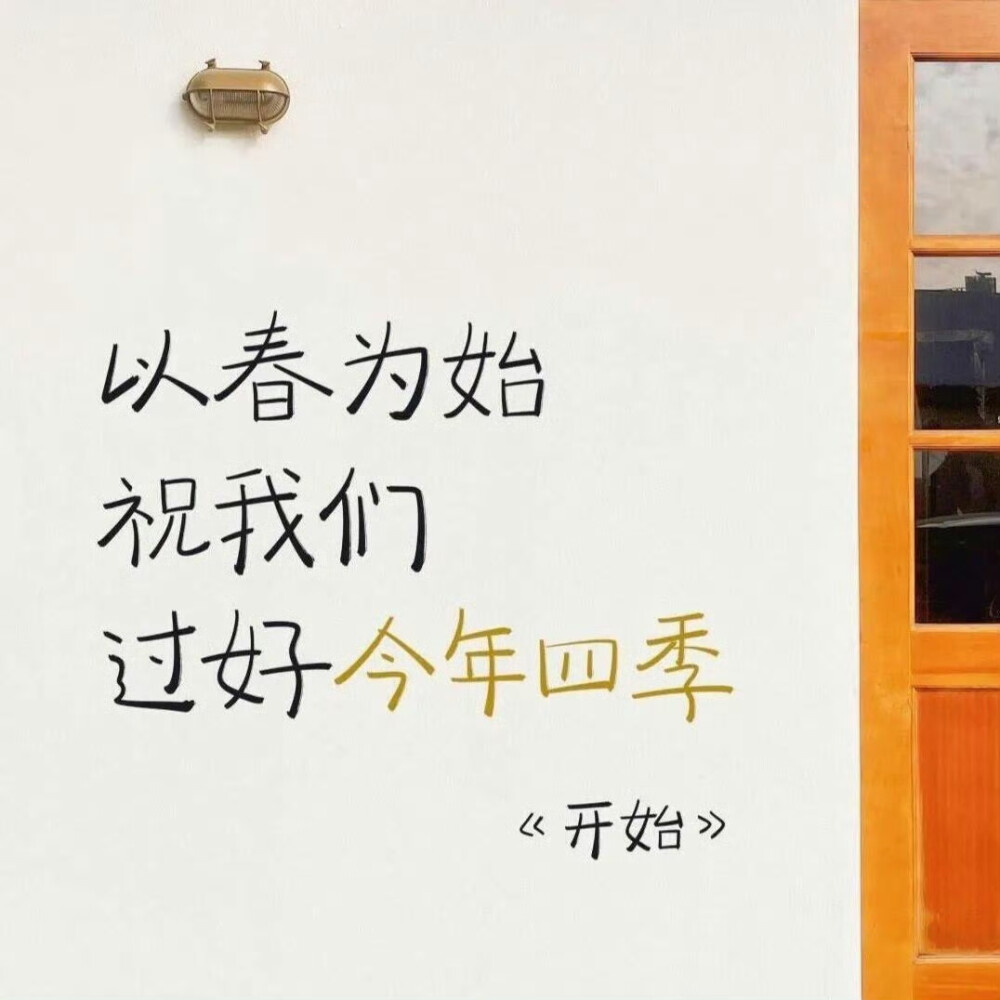 以春为始
祝我们
过好今年四季
《开始》